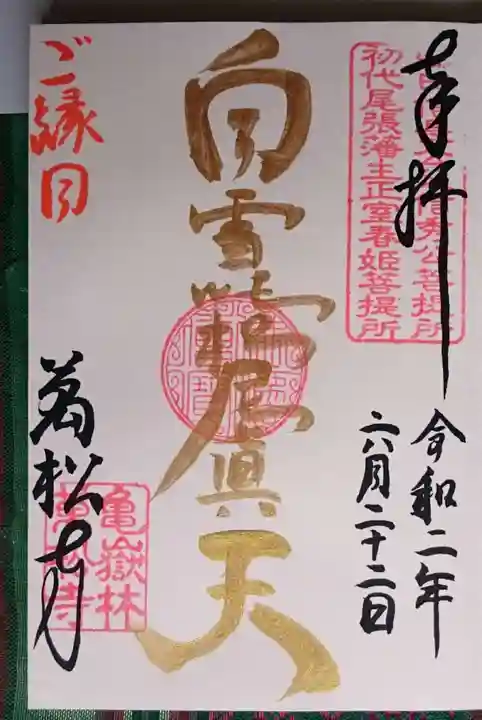 奉拝
初代尾張藩主正室春姫菩提所
令和二年
六月二十二日
白雪稲荷眞天
ご縁日
萬松寺
亀嶽林
萬松寺